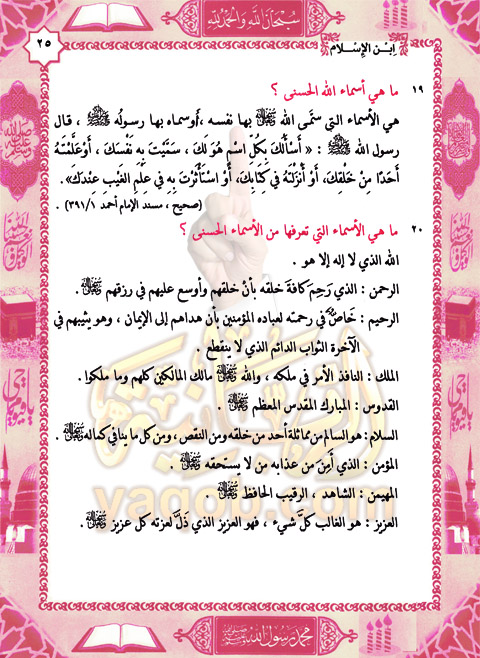 سُبْحَانَ اللَّهِ وَالْحَمْدُ لِلَّهِ
٢٥
اِبْن الإِسْلام
١٩ ما هي أسماء الله الحسنى ؟
هي الأسماء التي سمَّى الله ﷻ بها نفسه ،أوسماه بها رسولُه ﷺ ، قال
رسول الله ﷺ : « أَسْأَلُكَ بِكُلِّ اسْمٍ هُوَ لَكَ ، سَمَّيْتَ بِهِ نَفْسَكَ ، أَوْعَلَّمْتَهُ
أَحَدًا مِنْ خَلْقِكَ، أَوْ أَنْزَلْتَهُ فِي كِتَابِكَ، أَوْ اسْتَأْثَرْتَ بِهِ فِي عِلْمِ الْغَيْبِ عِنْدَكَ».
( صحيح ، مسند الإمام أحمد ٣٩١/١ ) .
٢٠ ما هي الأسماء التي تعرفها من الأسماء الحسنى ؟
الله الذي لا إله إلا هو .
الرحمن : الذي رَحِمَ كافةَ خلقه بأنْ خلقهم وأوسع عليهم في رزقهم ﷻ .
الرحيم : خَاصٌّ في رحمته لعباده المؤمنين بأن هداهم إلى الإيمان ، وهو يثيبهم في
الآخرة الثواب الدائم الذي لا ينقطع .
الملك : النافذ الأمر في ملكه ، والله ﷻ مالك المالكين كلهم وما ملكوا .
القدوس : المبارك المقدس المعظم ﷻ .
السلام : هو السالم من مماثلة أحد من خلقه ومن النقص ، ومن كل ما ينافي كماله ﷻ .
المؤمن : الذي أَمِنَ من عذابه من لا يستحقه ﷻ .
المهيمن : الشاهد ، الرقيب الحافظ ﷻ .
العزيز : هو الغالب كلَّ شيء ، فهو العزيز الذي ذَلَّ لعزته كل عزيز ﷻ .
yaqob.com
محمد رسول الله ﷺ